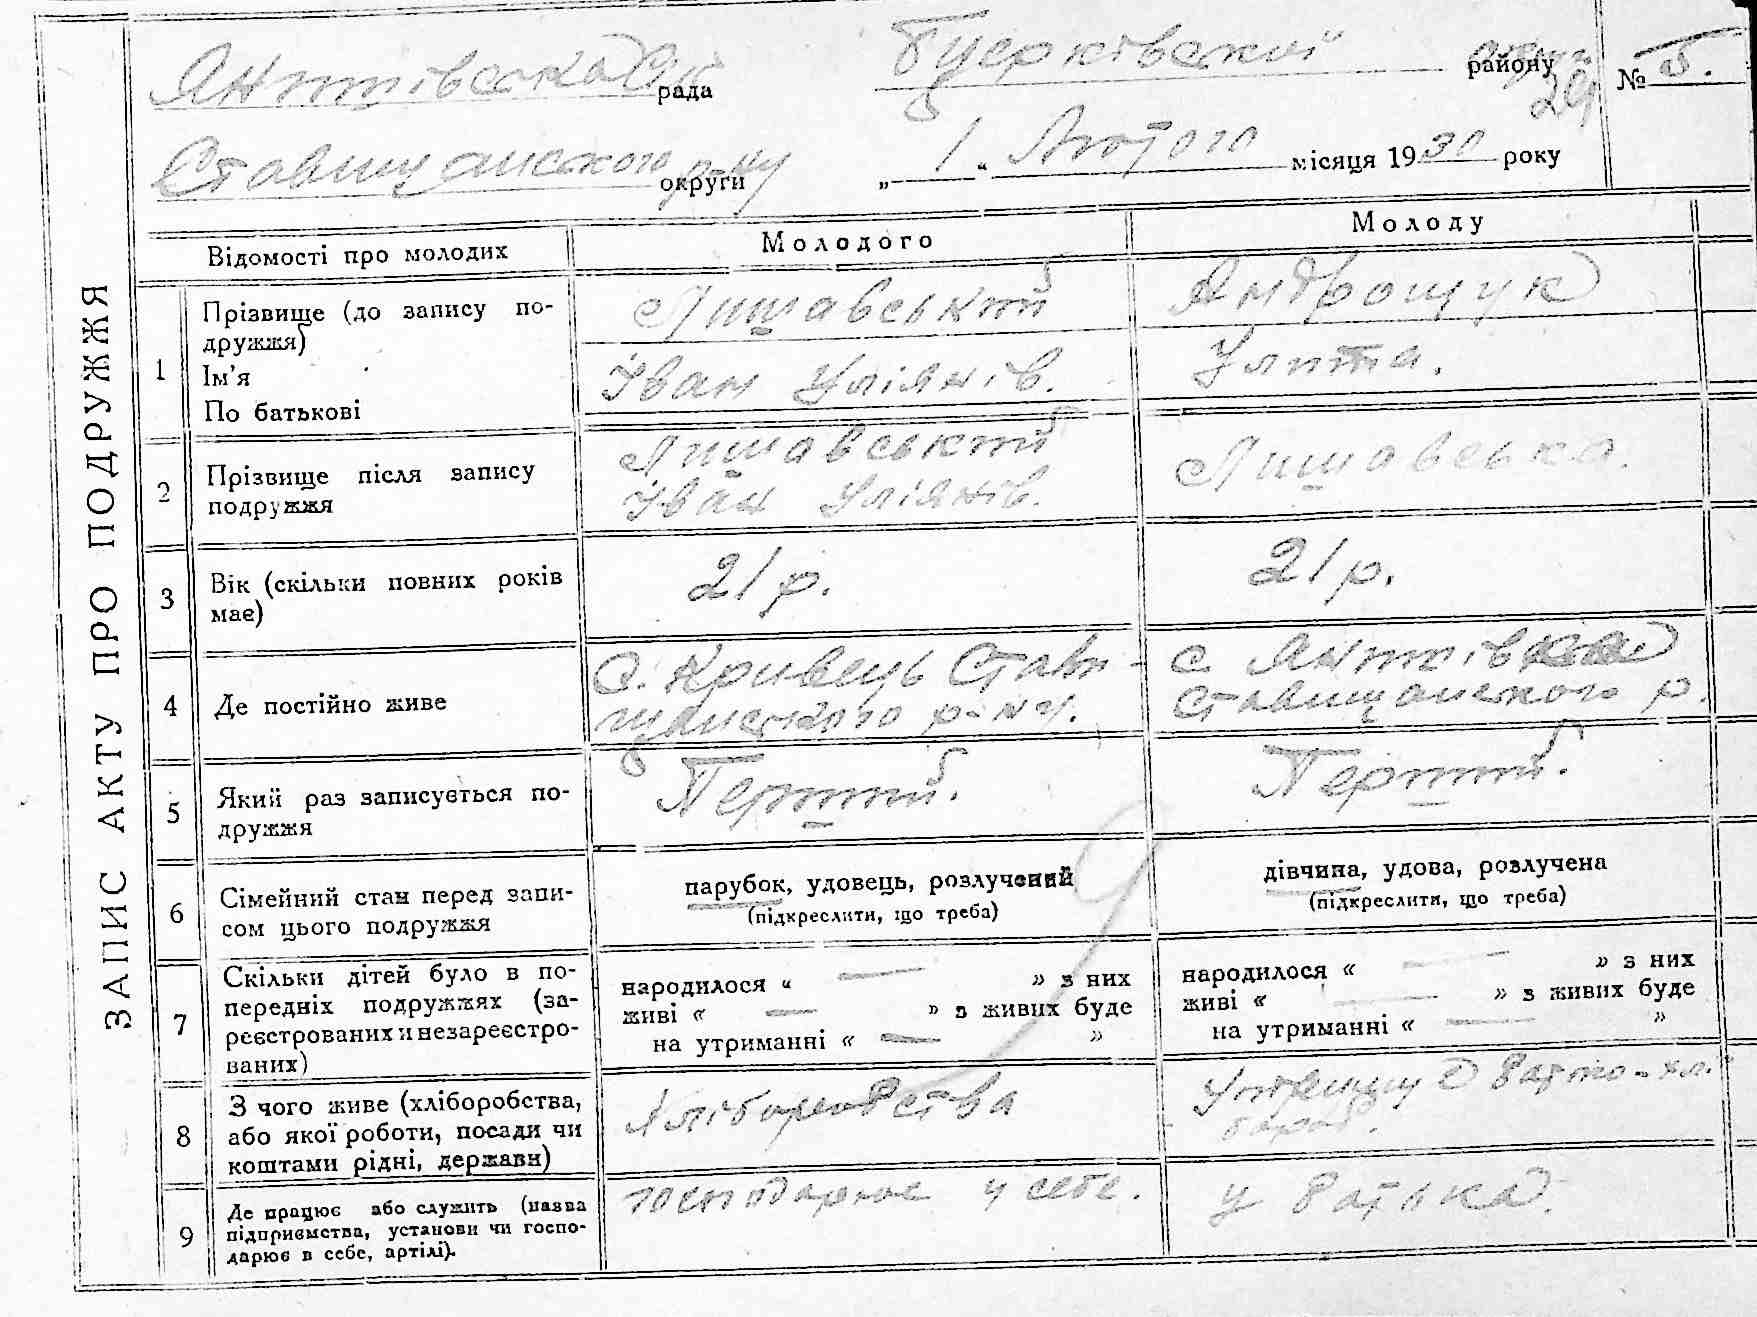 Янтівська С/к рада Бцерківский району № 5.
29
Ставищанского р-ну округи „ 1 “ Лютого місяця 1930 року
ЗАПИС АКТУ ПРО ПОДРУЖЖЯ
Відомості про молодих Молодого Молоду
1 Прізвище (до запису по-
дружжя)
Ім'я
По батькові
Лишавський
Іван Уліянів.
Андрощук
Улита.
2 Прізвище після запису
подружжя
Лишавський
Іван Уліянів.
Лишавська.
3 Вік (скільки повних років
має)
21 р.
21 р.
4 Де постійно живе
С. Кривець Стави-
щанского р-ну.
с. Янтівка
Ставищанского р.
5 Який раз записується по-
дружжя
Перший.
Перший.
6 Сімейний стан перед запи-
сом цього подружжя
парубок, удовець, розлучений
(підкреслити, що треба)
дівчина, удова, розлучена
(підкреслити, що треба)
7 Скільки дітей було в по-
передніх подружжях (за-
реєстрованих и незареєстро-
ваних)
народилося « — » з них
живі « — » з живих буде
на утриманні « — »
народилося « — » з них
живі « — » з живих буде
на утриманні « — »
8 З чого живе (хліборобства,
або якої роботи, посади чи
коштами рідні, держави)
Хліборобства
9 Де працює або служить (назва
підприємства, установи чи госпо-
дарює в себе, артілі).
господарює у себе.
у батька.
9